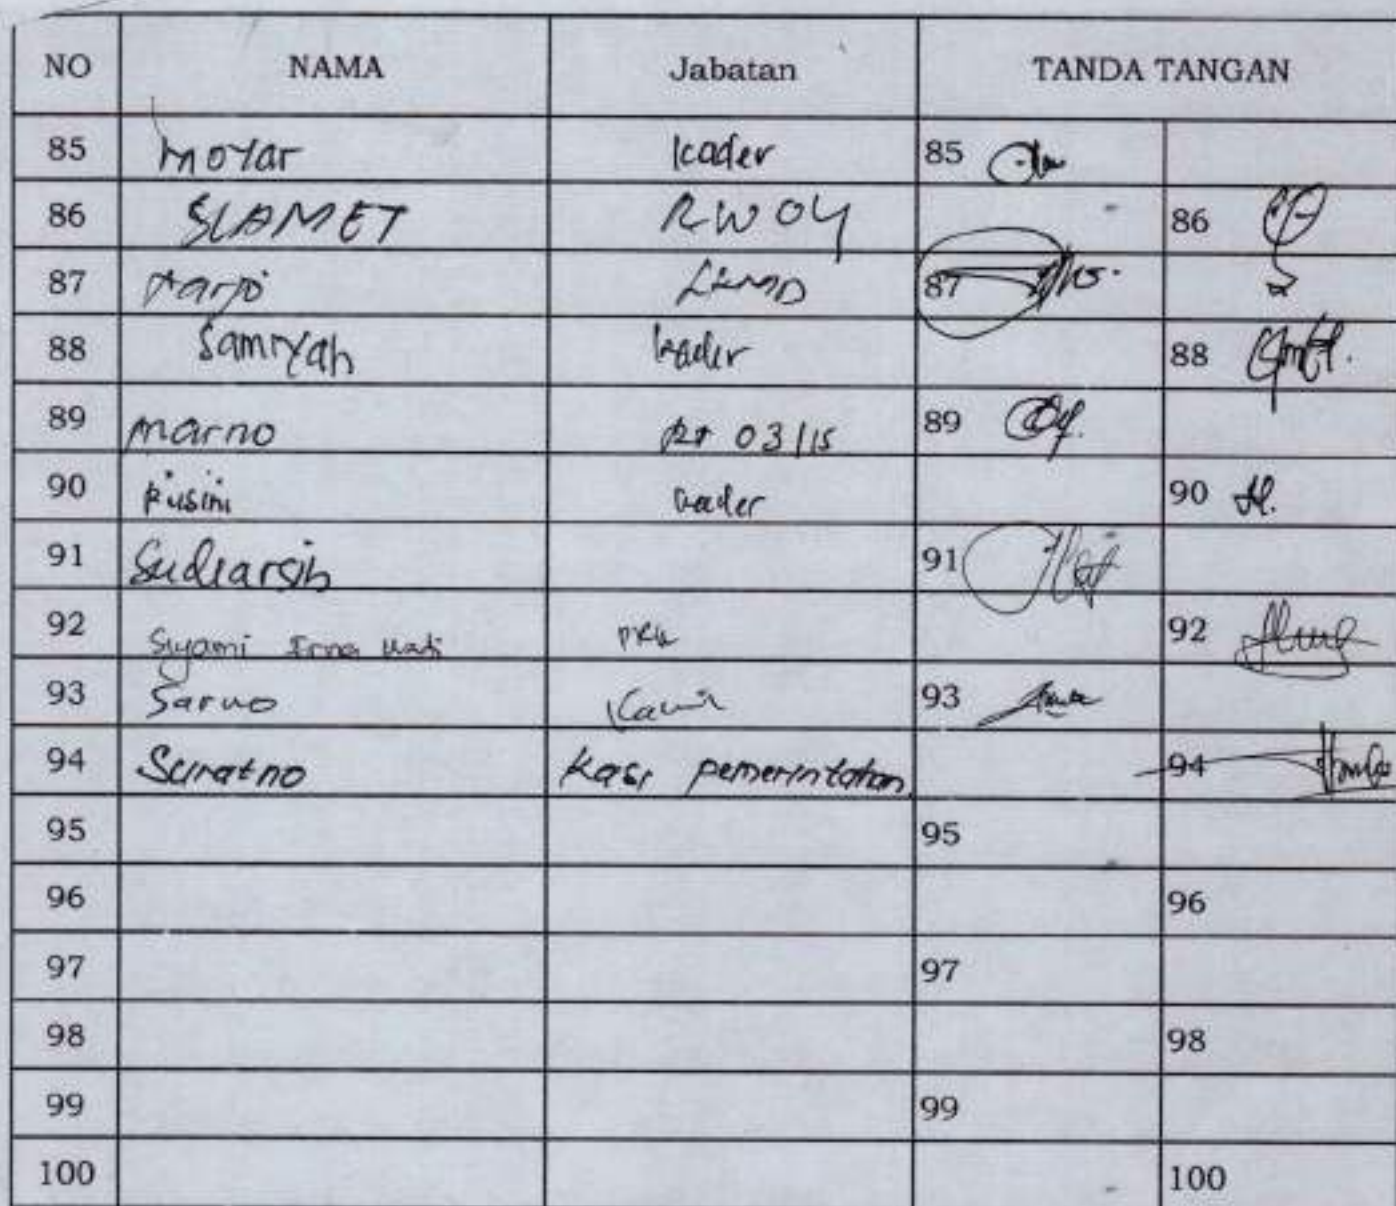 NO NAMA Jabatan TANDA TANGAN
85 Moyar kader 85
86 SLAMET RW 04 86
87 Tarjo LKMD 87
88 Samiyah kader 88
89 Marno Rt 03/15 89
90 Rusini kader 90
91 Sudiarsih 91
92 Suyami Erna Wati PKK 92
93 Sarno 93
94 Suratno Kasi pemerintahan 94
95 95
96 96
97 97
98 98
99 99
100 100